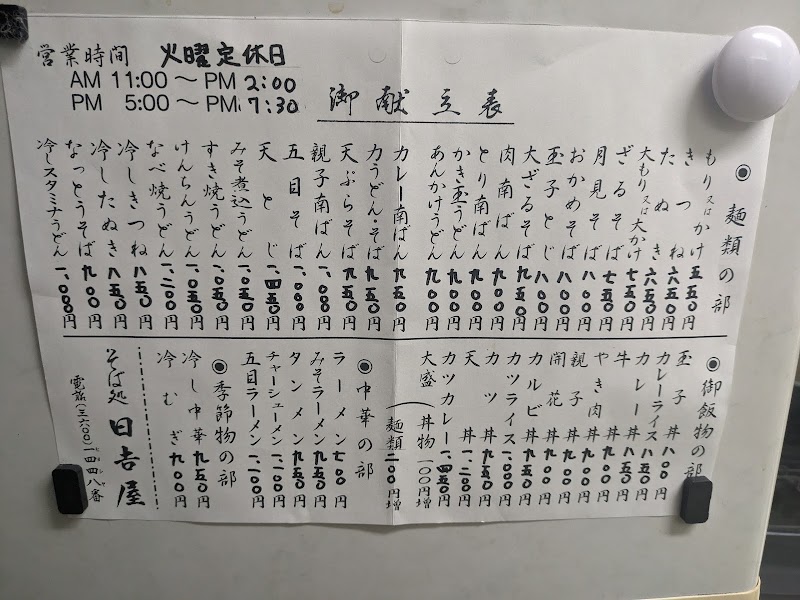 営業時間 火曜定休日
AM 11:00 ～ PM 2:00
PM 5:00 ～ PM 7:30
御献立表
◉麺類の部
もり又はかけ 五五〇円
きつね 六五〇円
たぬき 六五〇円
大もり又は大かけ 七五〇円
ざるそば 七五〇円
月見そば 八〇〇円
おかめそば 八〇〇円
玉子とじ 八〇〇円
大ざるそば 九五〇円
肉南ばん 九〇〇円
とり南ばん 九〇〇円
かき玉うどん 九〇〇円
あんかけうどん 九〇〇円
カレー南ばん 九五〇円
力うどん・そば 九五〇円
天ぷらそば 九五〇円
親子南ばん 一、〇〇〇円
五目そば 一、〇〇〇円
天とじ 一、四五〇円
みそ煮込うどん 一、〇五〇円
すき焼うどん 一、〇五〇円
けんちんうどん 一、〇五〇円
なべ焼うどん 一、二〇〇円
冷しきつね 八五〇円
冷したぬき 八五〇円
なっとうそば 九〇〇円
冷しスタミナうどん 一、〇〇〇円
◉御飯物の部
玉子丼 八〇〇円
カレーライス 八〇〇円
カレー丼 八五〇円
牛丼 八五〇円
やき肉丼 九〇〇円
親子丼 九〇〇円
開花丼 九〇〇円
カルビ丼 九五〇円
カツライス 一、〇〇〇円
カツ丼 九五〇円
天丼 一、二〇〇円
カツカレー 一、四五〇円
大盛 丼物 一〇〇円増
麺類 二〇〇円増
◉中華の部
ラーメン 七〇〇円
みそラーメン 九五〇円
タンメン 九五〇円
チャーシューメン 一、一〇〇円
五目ラーメン 一、一〇〇円
◉季節物の部
冷し中華 九五〇円
冷むぎ 九〇〇円
そば処 日吉屋
電話(三六〇〇)一四四八番